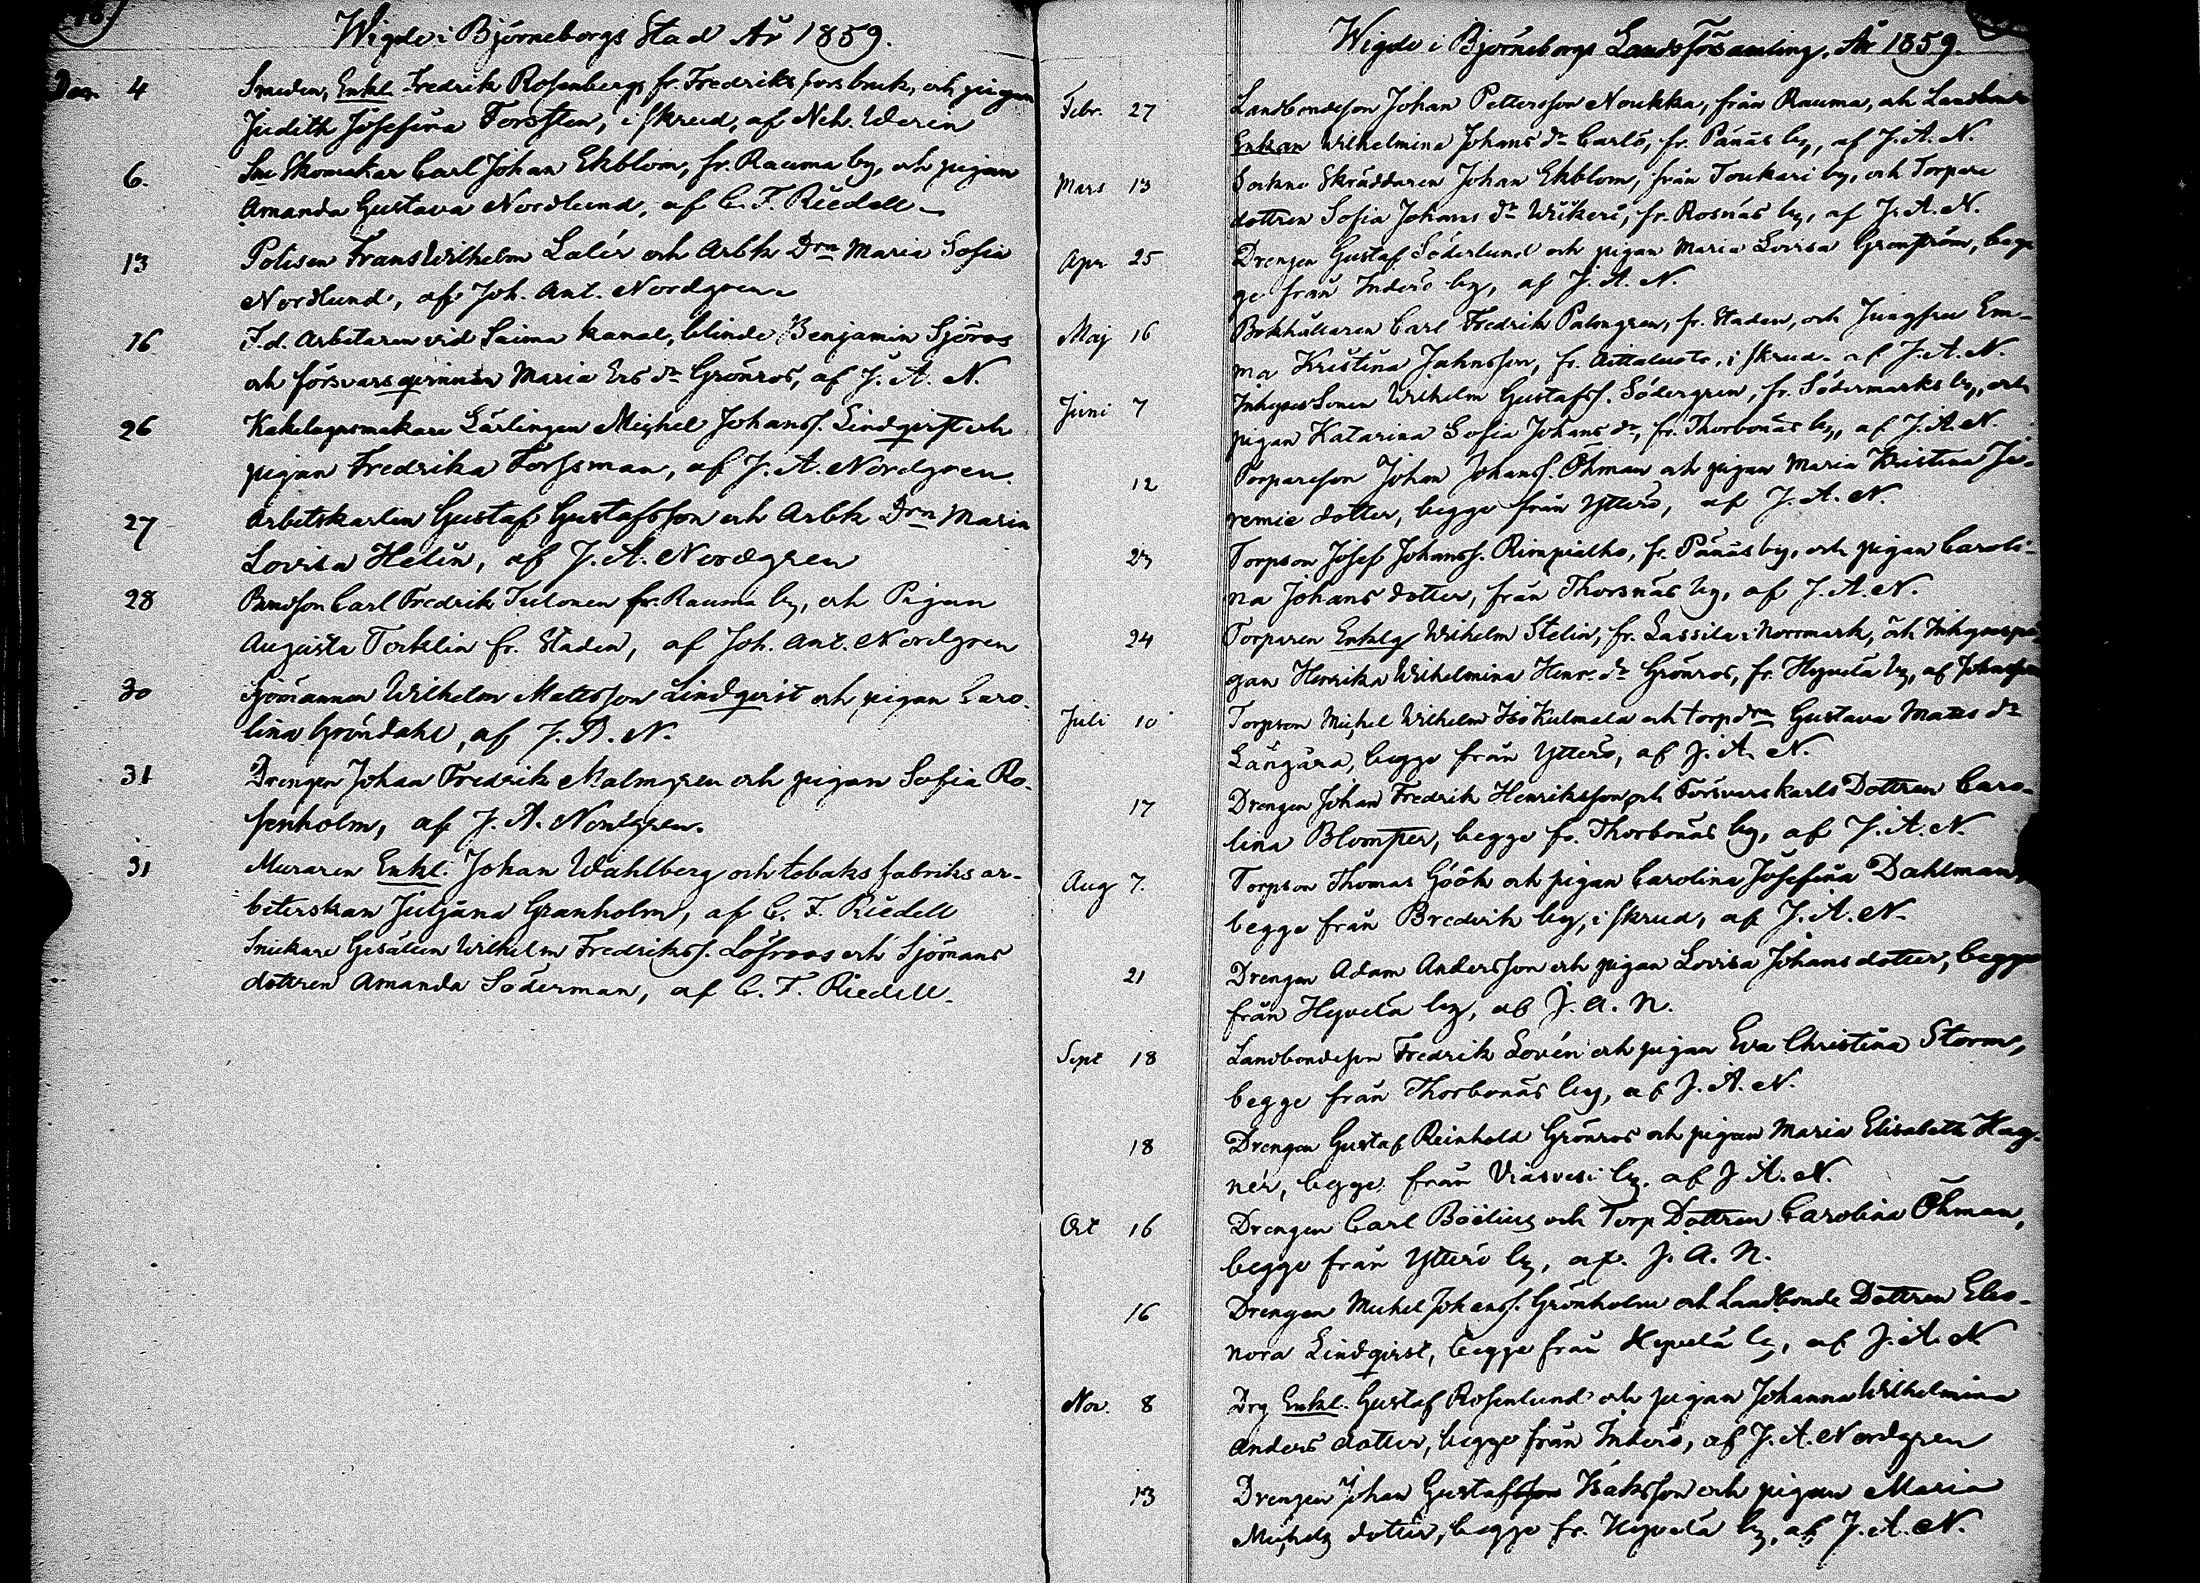 Wigde i Björneborgs Stad År 1859.
Dec. 4 Smeden, Enkl. Fredrik Rosenberg, fr. Fredriksfors bruk, och pigan
Judith Josefina Forssten, i skrud, af Neh. Werin
6. Skomakar Carl Johan Ekblom, fr. Rauma by, och pigan
Amanda Gustava Nordlund, af C. F. Riedell
13 Polisen Frans Wilhelm Lalér och Arbk Drn Maria Sofia
Nordlund, af Joh. Ant. Nordgren
16 F.d. Arbetaren vid Saima kanal, blinde Benjamin Sjöros
och försvarsqvinnan Maria Ers dr Grönros, af J. A. N.
26 Kakelugnsmakare Lärlingen Michel Johanss. Lindqvist och
pigan Fredrika Forssman, af J. A. Nordgren.
27 Arbetskarlen Gustaf Gustafsson och Arbk Drn Maria
Lovisa Helin, af J. A. Nordgren
28 Bondson Carl Fredrik Tulonen fr. Rauma by, och Pigan
Augusta Torklin fr. Staden, af Joh. Ant. Nordgren
30 Sjömannen Wilhelm Mattsson Lindqvist och pigan Caro-
lina Gröndahl, af J. A. N.
31 Drengen Johan Fredrik Malmgren och pigan Sofia Ro-
senholm, af J. A. Nordgren.
31 Muraren Enkl. Johan Wahlberg och tobaks fabriks ar-
beterskan Juliana Granholm, af C. F. Riedell
Snickare Gesällen Wilhelm Fredrikss. Löfroos och Sjömans
dottren Amanda Söderman, af C. F. Riedell.
Wigde i Björneborgs Landsförsamling, År 1859.
Febr. 27 Landbondeson Johan Pettersson Noukka, från Rauma, och
Enkan Wilhelmina Johans dr Carlö, fr. Pänäs by, af J. A. N.
Mars 13 Sockne Skräddaren Johan Ekblom, från Toukari by, och Torpare
dottren Sofia Johans dr Wikeri, fr. Rosnäs by, af J. A. N.
Apr 25 Drengen Gustaf Söderlund och pigan Maria Lovisa Granström, beg-
ge från Inderö by, af J. A. N.
Maj 16 Bokhållaren Carl Fredrik Palmgren, fr. Staden, och Jungfru Em-
ma Kristina Jahnsson, fr. Aittaluoto, i skrud. af J. A. N.
Juni 7 Inhyses Sonen Wilhelm Gustafss. Södergren, fr. Södermarks by, och
pigan Katarina Sofia Johans dr, fr. Thorbonäs by, af J. A. N.
12 Torpareson Johan Johanss. Öhman och pigan Maria Kristina Je-
remie dotter, begge från Ytterö, af J. A. N.
23 Torpson Josef Johanss. Rimpialho, fr. Pänäs by, och pigan Caroli-
na Johans dotter, från Thorsnäs by, af J. A. N.
24 Torparen Enklg Wilhelm Stelin, fr. Lassila i Norrmark, och Inhysespi-
gan Henrika Wilhelmina Henr. dr Grönros, fr. Hyvelä by, af
Juli 10 Torpson Michel Wilhelm Iso Kulmala och torpdrn Gustava Matts dr
Långåra, begge från Ytterö, af J. A. N.
17 Drengen Johan Fredrik Henriksson och Försvarskarls Dottren Caro-
lina Blomster, begge fr. Thorbonäs by, af J. A. N.
Aug 7. Torpson Thomas Göök och pigan Carolina Josefina Dahlman,
begge från Bredvik by, i skrud, af J. A. N.
21 Drengen Adam Andersson och pigan Lovisa Johans dotter, begge
från Hyvelä by, af J. A. N.
Sept 18 Landbondeson Fredrik Lovén och pigan Eva Christina Storm,
begge från Thorbonäs by, af J. A. N.
18 Drengen Gustaf Reinhold Grönros och pigan Maria Elisabeth Hag-
nér, begge från Viasvesi by. af J. A. N.
Oct 16 Drengen Carl Boëlius och Torp Dottren Carolina Öhman,
begge från Ytterö by, af. J. A. N.
16 Drengen Michel Johanss. Grönholm och Landbonde Dottren Eleo-
nora Lindqvist, begge från Hyvelä by, af J. A. N
Nov. 8 Drg Enkl. Gustaf Rosenlund och pigan Johanna Wilhelmina
Anders dotter, begge från Inderö, af J. A. Nordgren
13 Drengen Johan Gustafsson Isaksson och pigan Maria
Michels dotter, begge fr. Hyvelä by, af J. A. N.